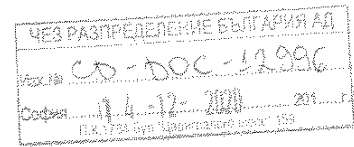 ЧЕЗ РАЗПРЕДЕЛЕНИЕ БЪЛГАРИЯ АД
Изх.№ CD-DOC-12996
София 14-12-2020 201 г.
П.К.1784 бул "Цариградско шосе" 159